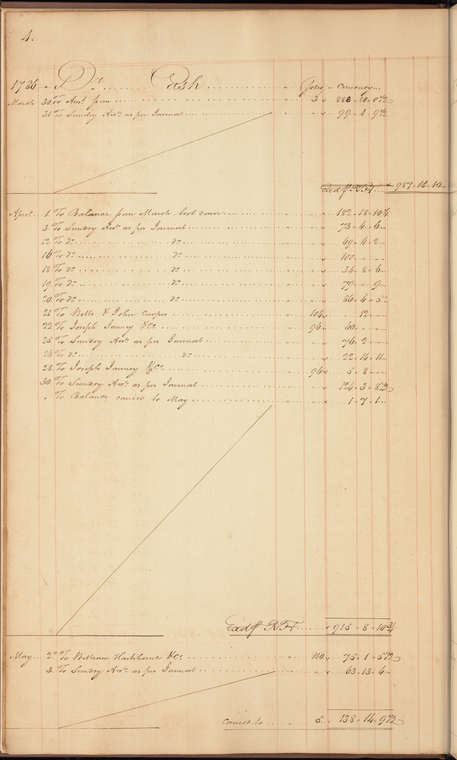 4.
1786 Dr Cash folio Currency
March 30 To Amt from 3 888 .. 10 .. 0½
31 To Sundry Accts as per Journal 99 .. 4 .. 9½
Exd ff R.H 987 .. 14 .. 10
April 1 To Balance from March brot 182 .. 18 .. 10½
3 To Sundry Accts as per Journal 73 .. 4 .. 6
12 To do do 69 .. 4 .. 2
16 To do do 100
18 To do do 36 .. 8 .. 6
19 To do do 79 9
20 To do do 86 .. 4 .. 5
21 To Bills & John Cooper 104 12
22 To Joseph Janney &Co 96 60
25 To Sundry Accts as per Journal 76 .. 2
26 To do do 22 .. 14 .. 11
28 To Joseph Janney &Co 96 5 .. 8
30 To Sundry Accts as per Journal 124 .. 3 .. 8½
To Balance carried to May 1 .. 7 .. 1
Exd ff R.H 915 .. 8 .. 10½
May 2d To William Hartshorne &Co 110 75 .. 1 .. 5½
3 To Sundry Accts as per Journal 63 .. 13 .. 4
carried to 5 138 .. 14 .. 9½